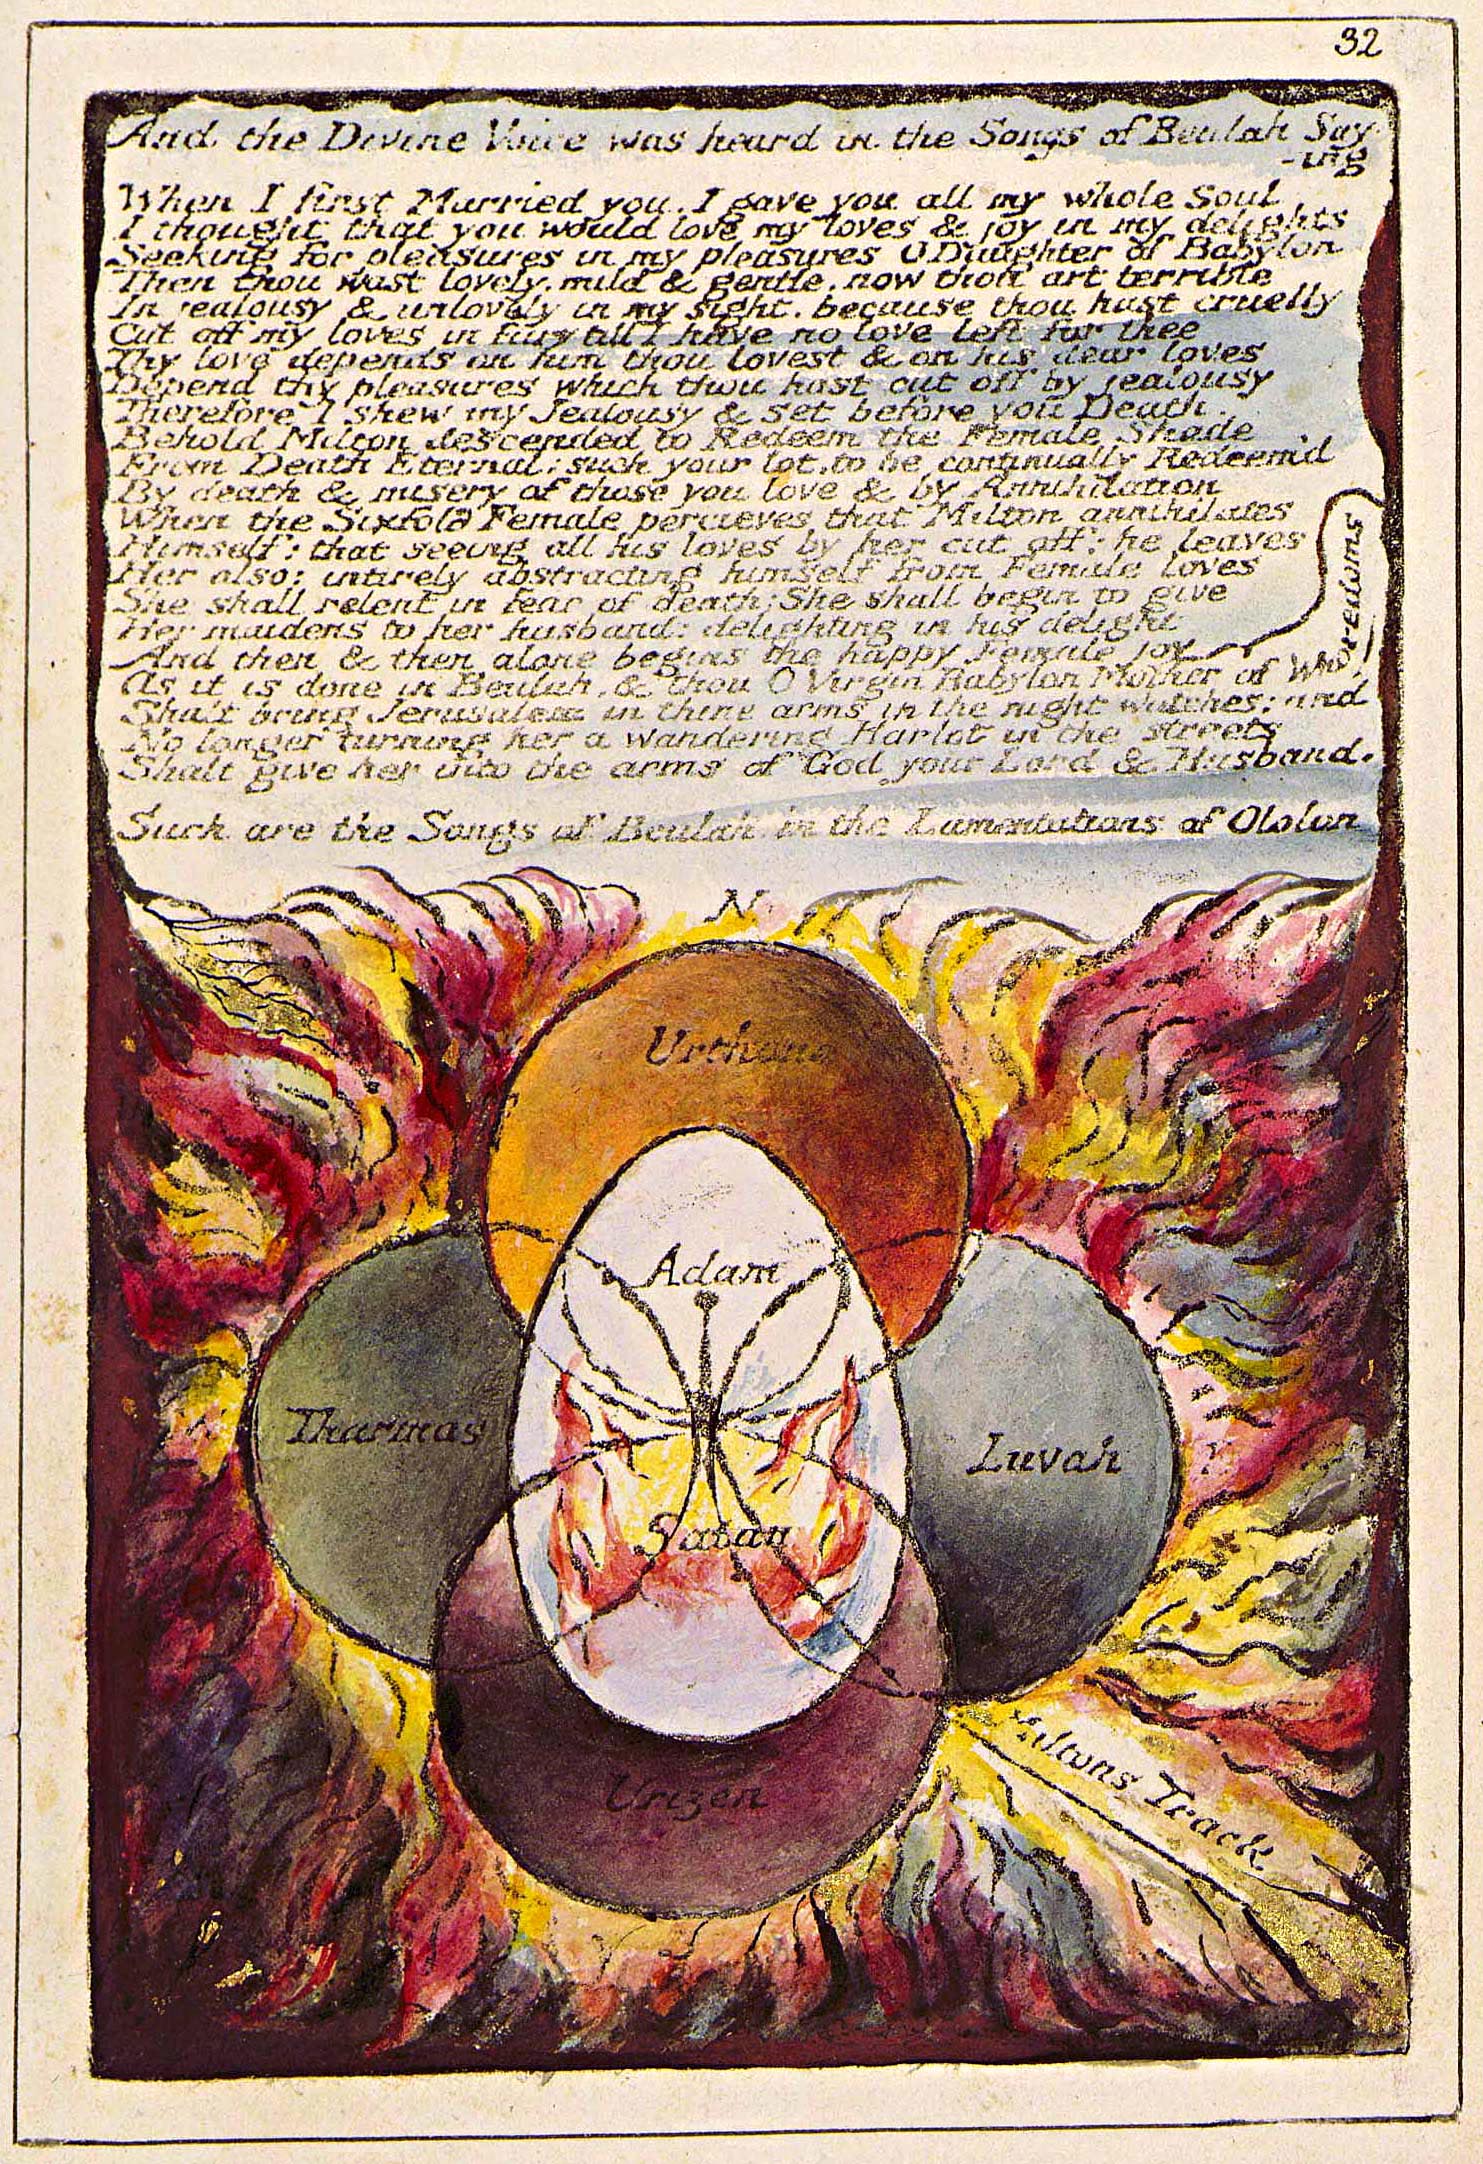 32
And the Divine Voice was heard in the Songs of Beulah Say-
-ing
When I first Married you, I gave you all my whole Soul
I thought that you would love my loves & joy in my delights
Seeking for pleasures in my pleasures O Daughter of Babylon
Then thou wast lovely, mild & gentle, now thou art terrible
In jealousy & unlovely in my sight, because thou hast cruelly
Cut off my loves in fury till I have no love left for thee
Thy love depends on him thou lovest & on his dear loves
Depend thy pleasures which thou hast cut off by jealousy
Therefore I shew my Jealousy & set before you Death.
Behold Milton descended to Redeem the Female Shade
From Death Eternal; such your lot, to be continually Redeem'd
By death & misery of those you love & by Annihilation
When the Sixfold Female percieves that Milton annihilates
Himself: that seeing all his loves by her cut off: he leaves
Her also: intirely abstracting himself from Female loves
She shall relent in fear of death; She shall begin to give
Her maidens to her husband: delighting in his delight
And then & then alone begins the happy Female joy
As it is done in Beulah, & thou O Virgin Babylon Mother of Whoredoms
Shalt bring Jerusalem in thine arms in the night watches; and
No longer turning her a wandering Harlot in the streets
Shalt give her into the arms of God your Lord & Husband.
Such are the Songs of Beulah in the Lamentations of Ololon
N
Urthona
Adam
Tharmas
Luvah
Satan
Miltons Track
Urizen